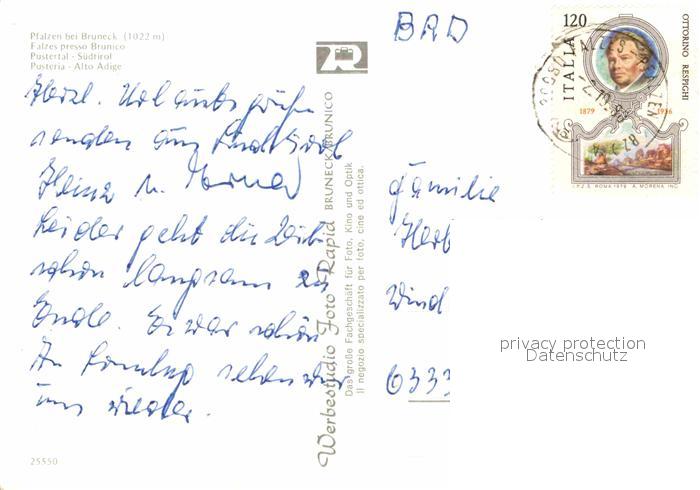 Pfalzen bei Bruneck (1022 m)
Falzes presso Brunico
Pustertal - Südtirol
Pusteria - Alto Adige
Herzl. Urlaubsgrüße
senden aus Südtirol
Heinz u.
Leider geht die Zeit
schon langsam zu
Ende. Es war schön
An Samstag sehen wir
uns wieder.
25550
Werbestudio Foto Rapid BRUNECK-BRUNICO
Das große Fachgeschäft für Foto, Kino und Optik
Il negozio specializzato per foto, cine ed ottica.
BRD
120
ITALIA
OTTORINO RESPIGHI
1879 1936
I.P.Z.S. ROMA 1979 A. MORENA INC.
Familie
Herb
Wind
6333
privacy protection
Datenschutz